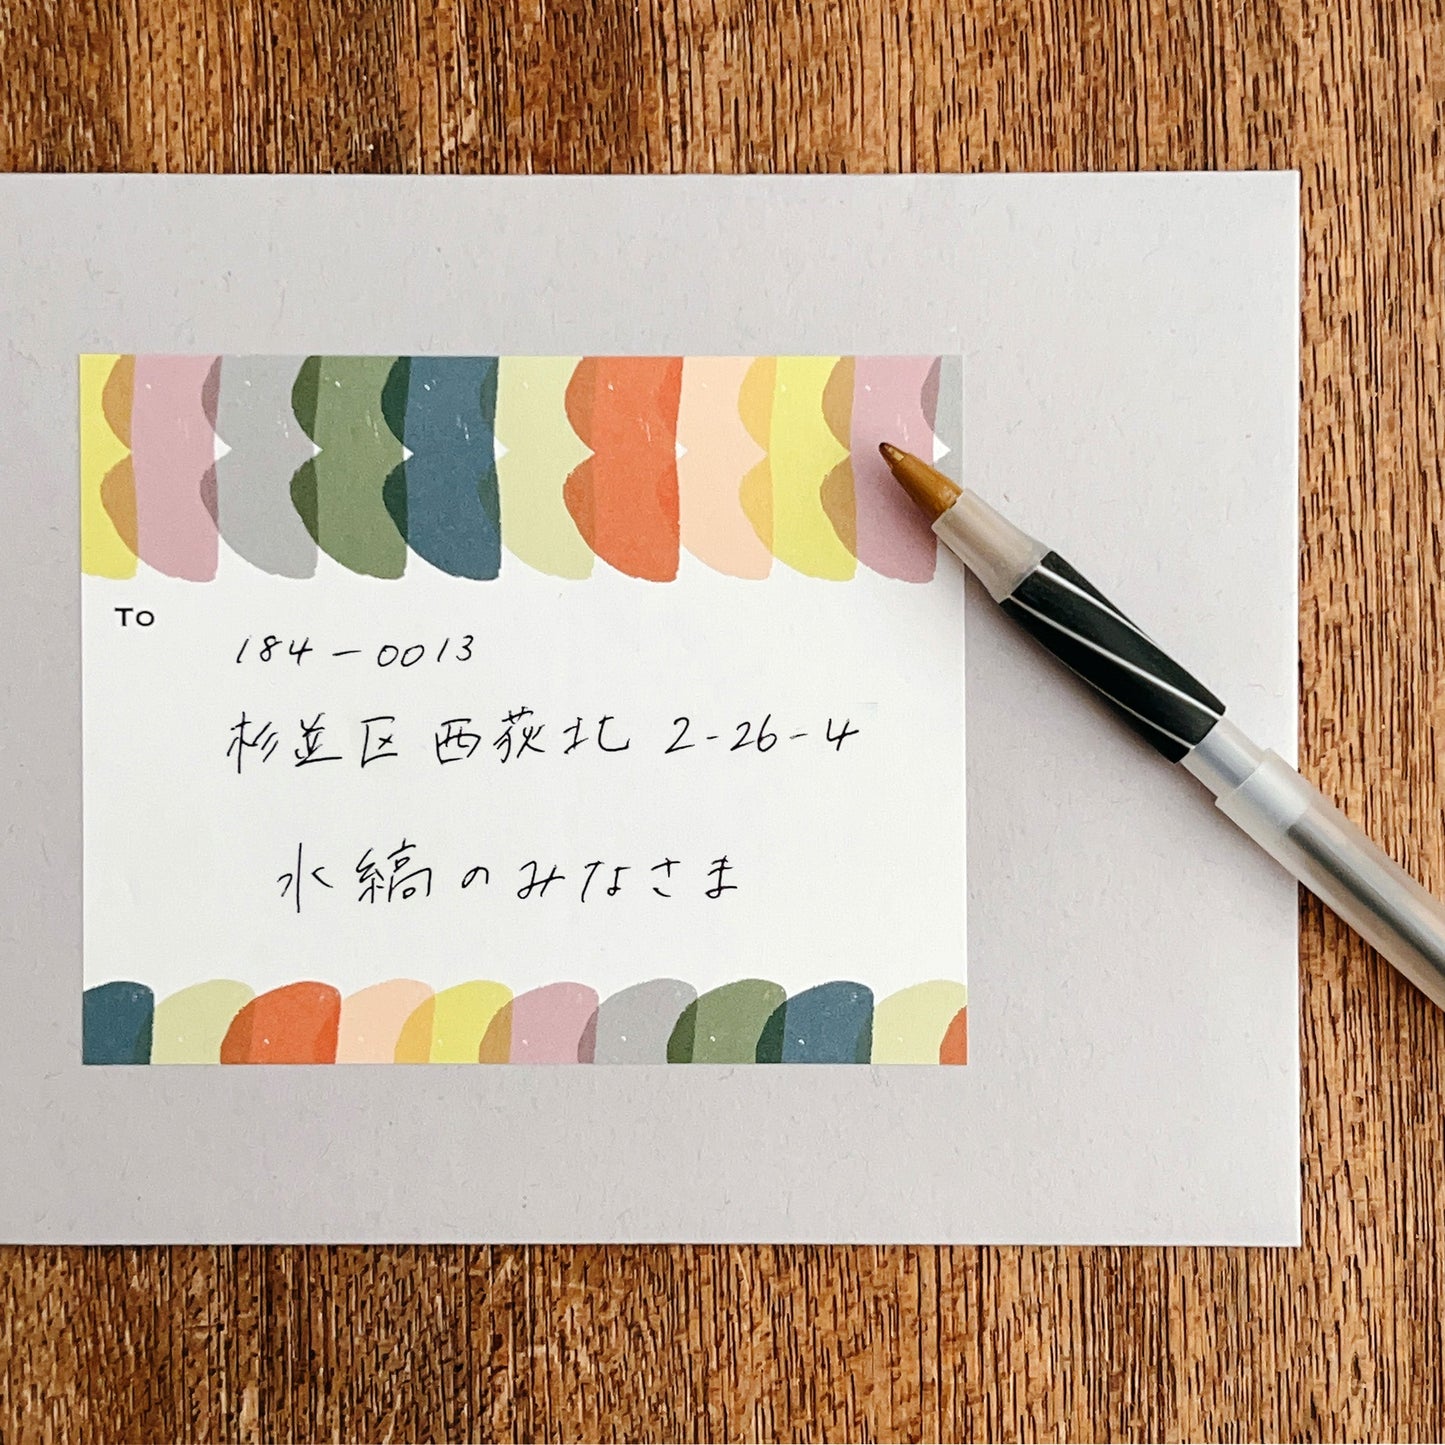 To
184-0013
杉並区 西荻北 2-26-4
水縞のみなさま